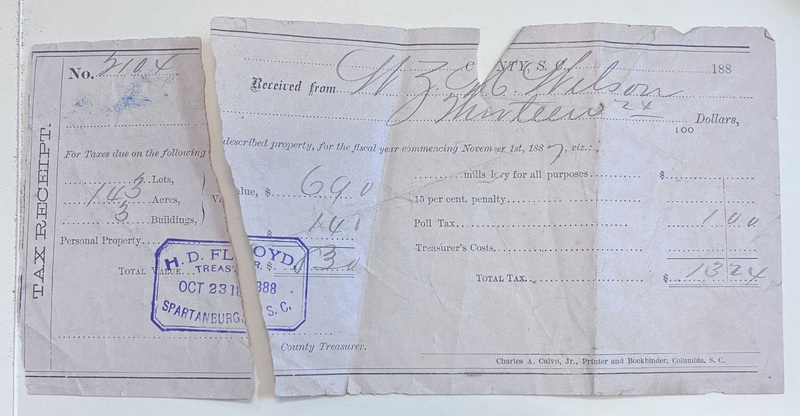 TAX RECEIPT.
No. 2104
NTY, S. C. 188
Received from W. Z. Wilson
Thirteen 24/100 Dollars,
For Taxes due on the following described property, for the fiscal year commencing November 1st, 1887, viz.:
Lots,
143 Acres,
3 Buildings,
Value, $ 690
$ 141
Personal Property
TOTAL VALUE $
mills levy for all purposes $
15 per cent. penalty
Poll Tax 1 00
Treasurer's Costs
TOTAL TAX $ 13 24
H. D. FLOYD,
TREASURER.
OCT 23 1888
SPARTANBURG, S. C.
County Treasurer.
Charles A. Calvo, Jr., Printer and Bookbinder, Columbia, S. C.